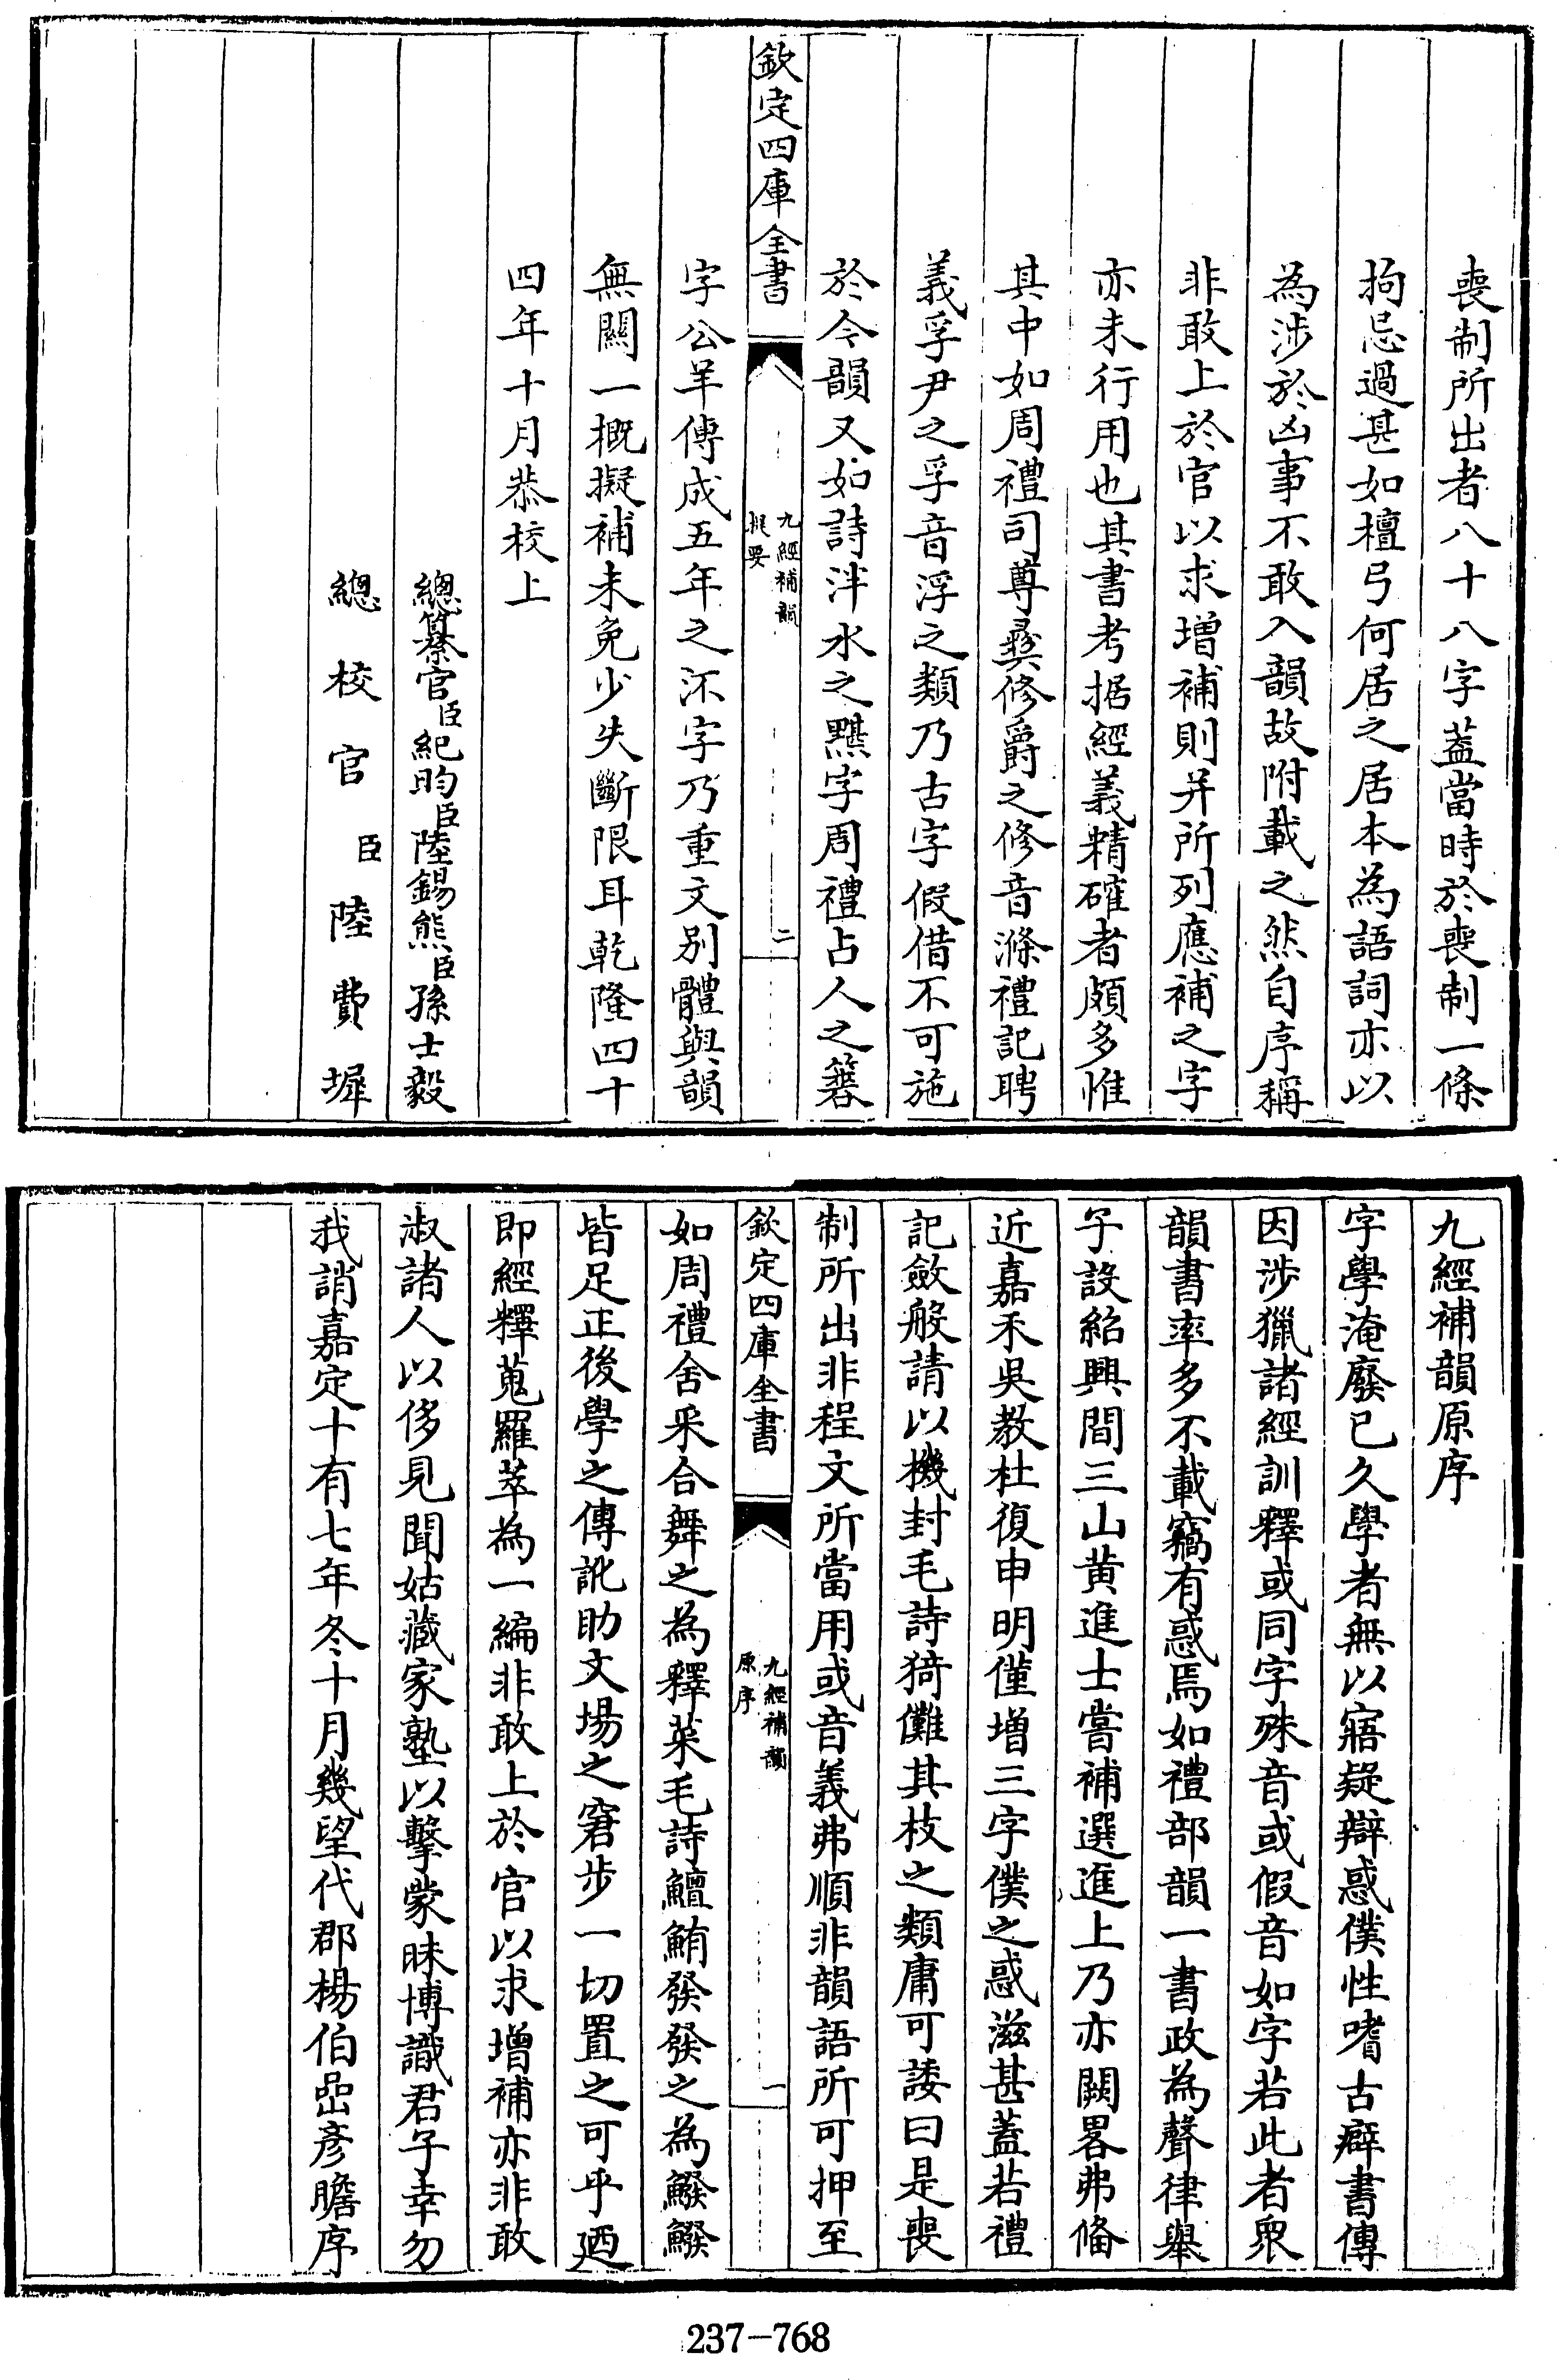 喪制所出者八十八字葢當時於喪制一條
拘忌過甚如檀弓何居之居本為語詞亦以
為涉於凶事不敢入韻故附載之然自序稱
非敢上於官以求増補則并所列應補之字
亦未行用也其書考据經義精確者頗多惟
其中如周禮司尊彛修爵之修音滌禮記聘
義孚尹之孚音浮之類乃古字假借不可施
於今韻又如詩泮水之黮字周禮占人之簭
欽定四庫全書
九經補韻
提要
二
字公羊傳成五年之沠字乃重文別體與韻
無關一概擬補未免少失斷限耳乾隆四十
四年十月恭校上
總纂官臣紀昀臣陸錫熊臣孫士毅
總校官臣陸費墀
九經補韻原序
字學淹廢已久學者無以寤疑辯惑僕性嗜古癖書傳
因涉獵諸經訓釋或同字殊音或假音如字若此者衆
韻書率多不載竊有惑焉如禮部韻一書政為聲律舉
子設紹興間三山黄進士嘗補選進上乃亦闕畧弗備
近嘉禾吳教杜復申明僅増三字僕之惑滋甚葢若禮
記斂般請以機封毛詩猗儺其枝之類庸可諉曰是喪
制所出非程文所當用或音義弗順非韻語所可押至
欽定四庫全書
九經補韻
原序
一
如周禮舍采合舞之為釋菜毛詩鱣鮪發發之為鱍鱍
皆足正後學之傳訛助文場之窘步一切置之可乎廼
即經釋蒐羅萃為一編非敢上於官以求增補亦非敢
淑諸人以侈見聞姑藏家塾以擊蒙昧博識君子幸勿
我誚嘉定十有七年冬十月幾望代郡楊伯嵒彦瞻序
237-768